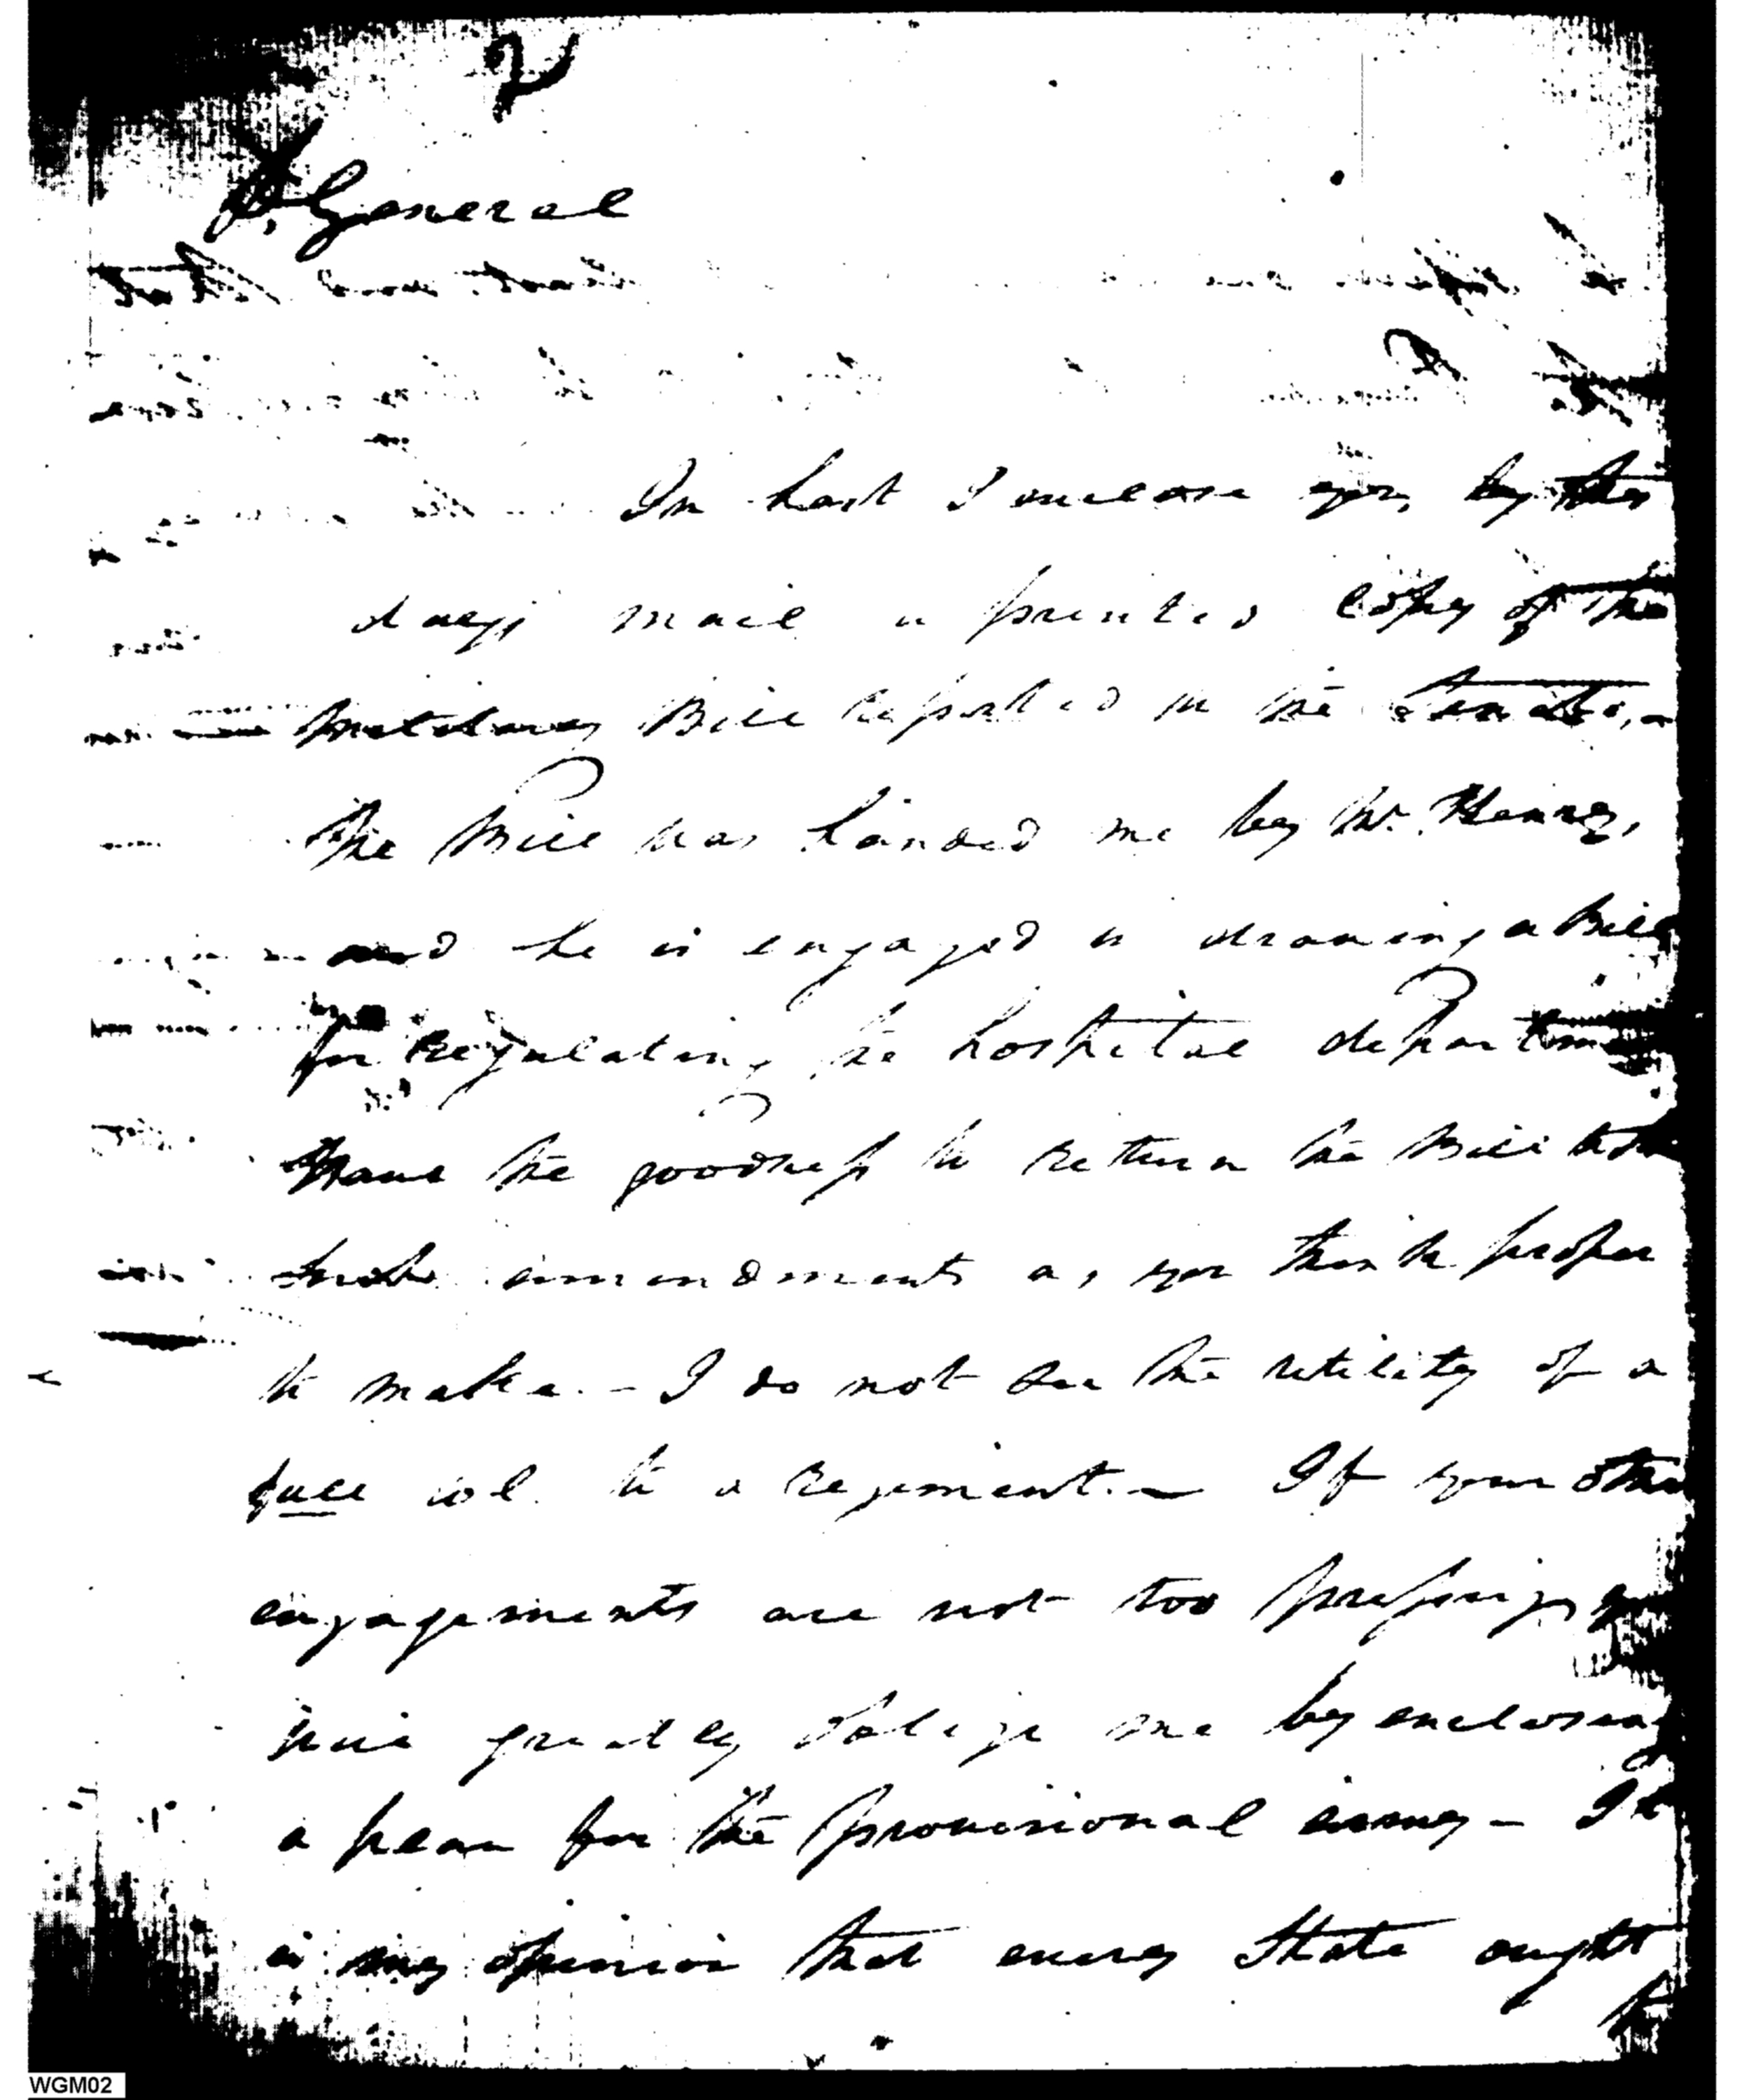 2
D. General
In hast I enclose you, by this
days mail a printed copy of the
military Bill reported in the Senate, –
The Bill was handed me by Mr. Henry,
and he is engaged in drawing a Bill
for regulating the hospital departme
Have the goodness to return the Bill with
such amendments as you think proper
to make. – I do not see the utility of a
full col. to a regiment. – If your other
engagements are not too pressing, you
will greatly oblige me by enclosing
a plan for the provisional army – It
is my opinion that every State ought
to
WGM02